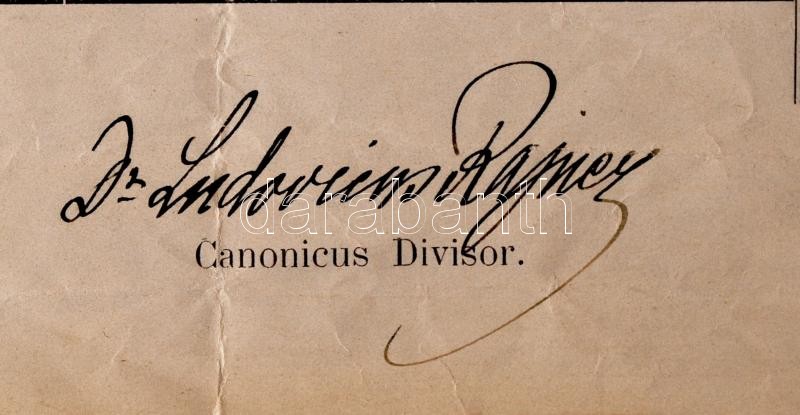 Dr Ludovicus Rajner
darabanth
Canonicus Divisor.